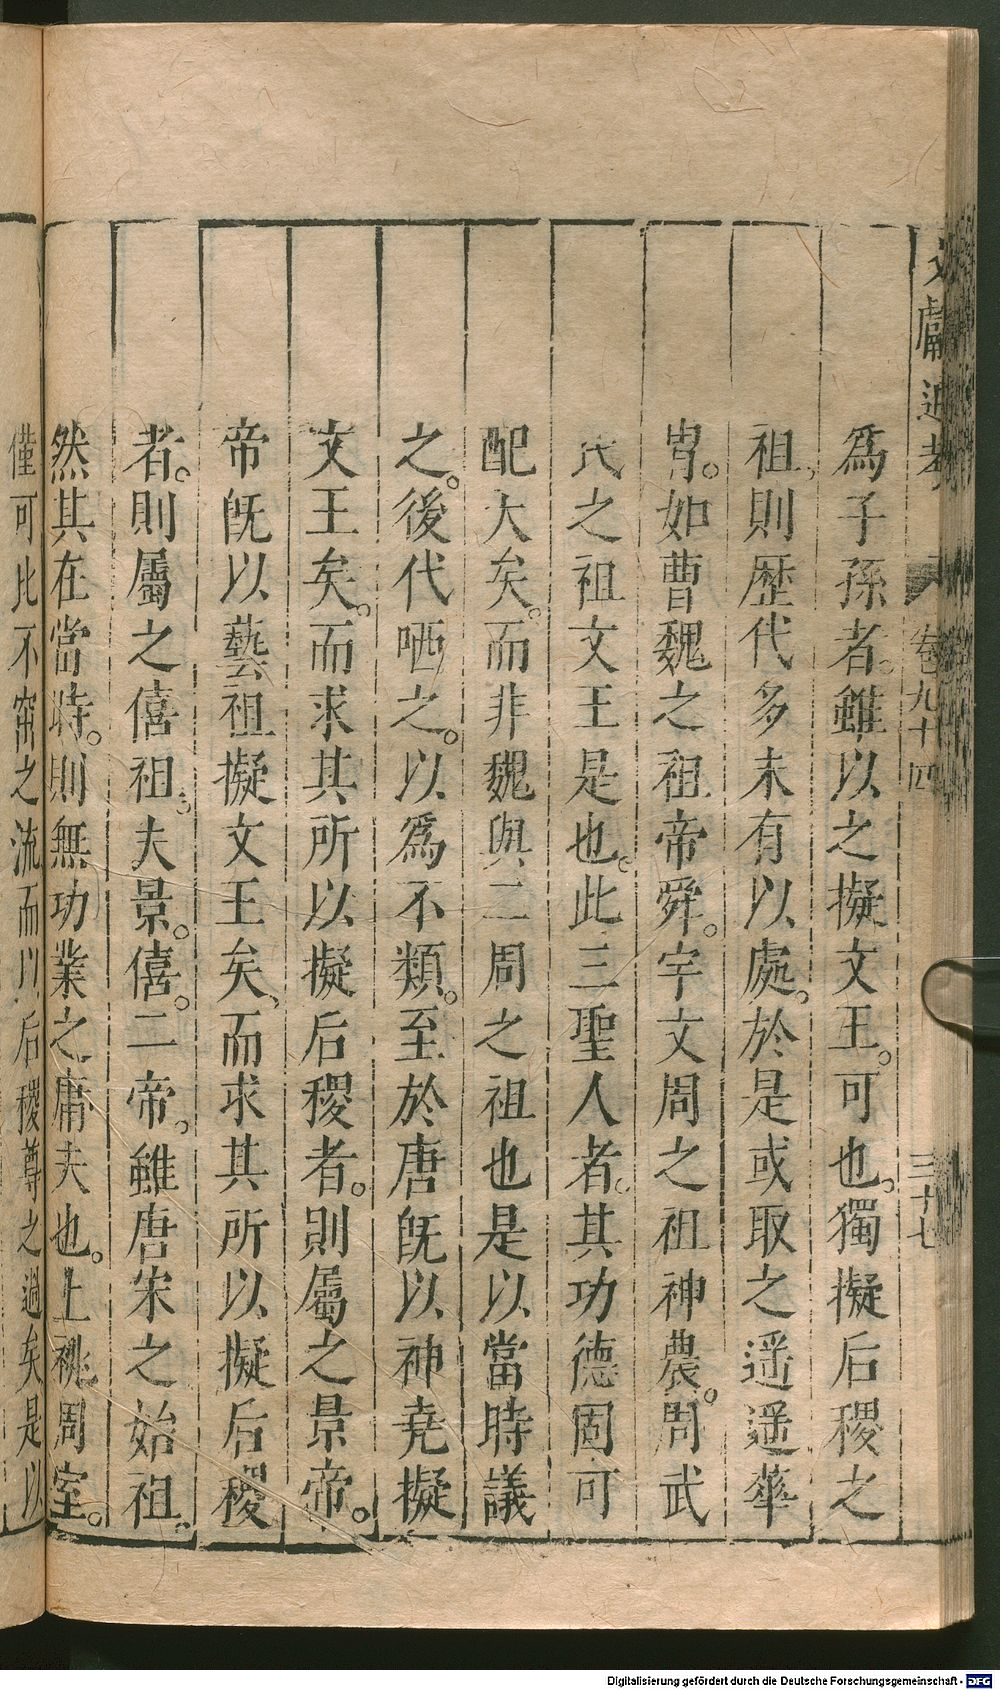 文獻通考 卷九十四 三十七
爲子孫者。雖以之擬文王。可也。獨擬后稷之
祖。則歷代多未有以處。於是或取之遥遥華
胄。如曹魏之祖帝舜。宇文周之祖神農。周武
氏之祖文王是也。此三聖人者。其功德固可
配大矣。而非魏與二周之祖也是以當時議
之。後代哂之。以爲不類。至於唐旣以神堯擬
文王矣。而求其所以擬后稷者。則屬之景帝。
帝旣以藝祖擬文王矣。而求其所以擬后稷
者。則屬之僖祖。夫景。僖。二帝。雖唐宋之始祖。
然其在當時。則無功業之庸夫也。上視周室。
僅可比不窋之流而以后稷尊之過矣是以
Digitalisierung gefördert durch die Deutsche Forschungsgemeinschaft - DFG